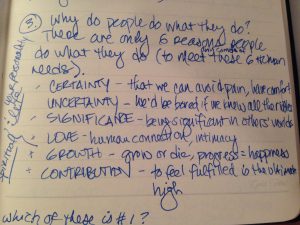 3. Why do people do what they do?
There are only 6 reasons people
do what they do (to meet these 6 human
needs).
• CERTAINTY - that we can avoid pain, have comfort
UNCERTAINTY - he'd be bored if we know all the
• SIGNIFICANCE - being significant in others'
• LOVE - human connection, intimacy
• GROWTH - grow or die, progress = happiness
• CONTRIBUTION - to feel fulfilled is the ultimate
high
which of these is #1?
spiritual
your personality